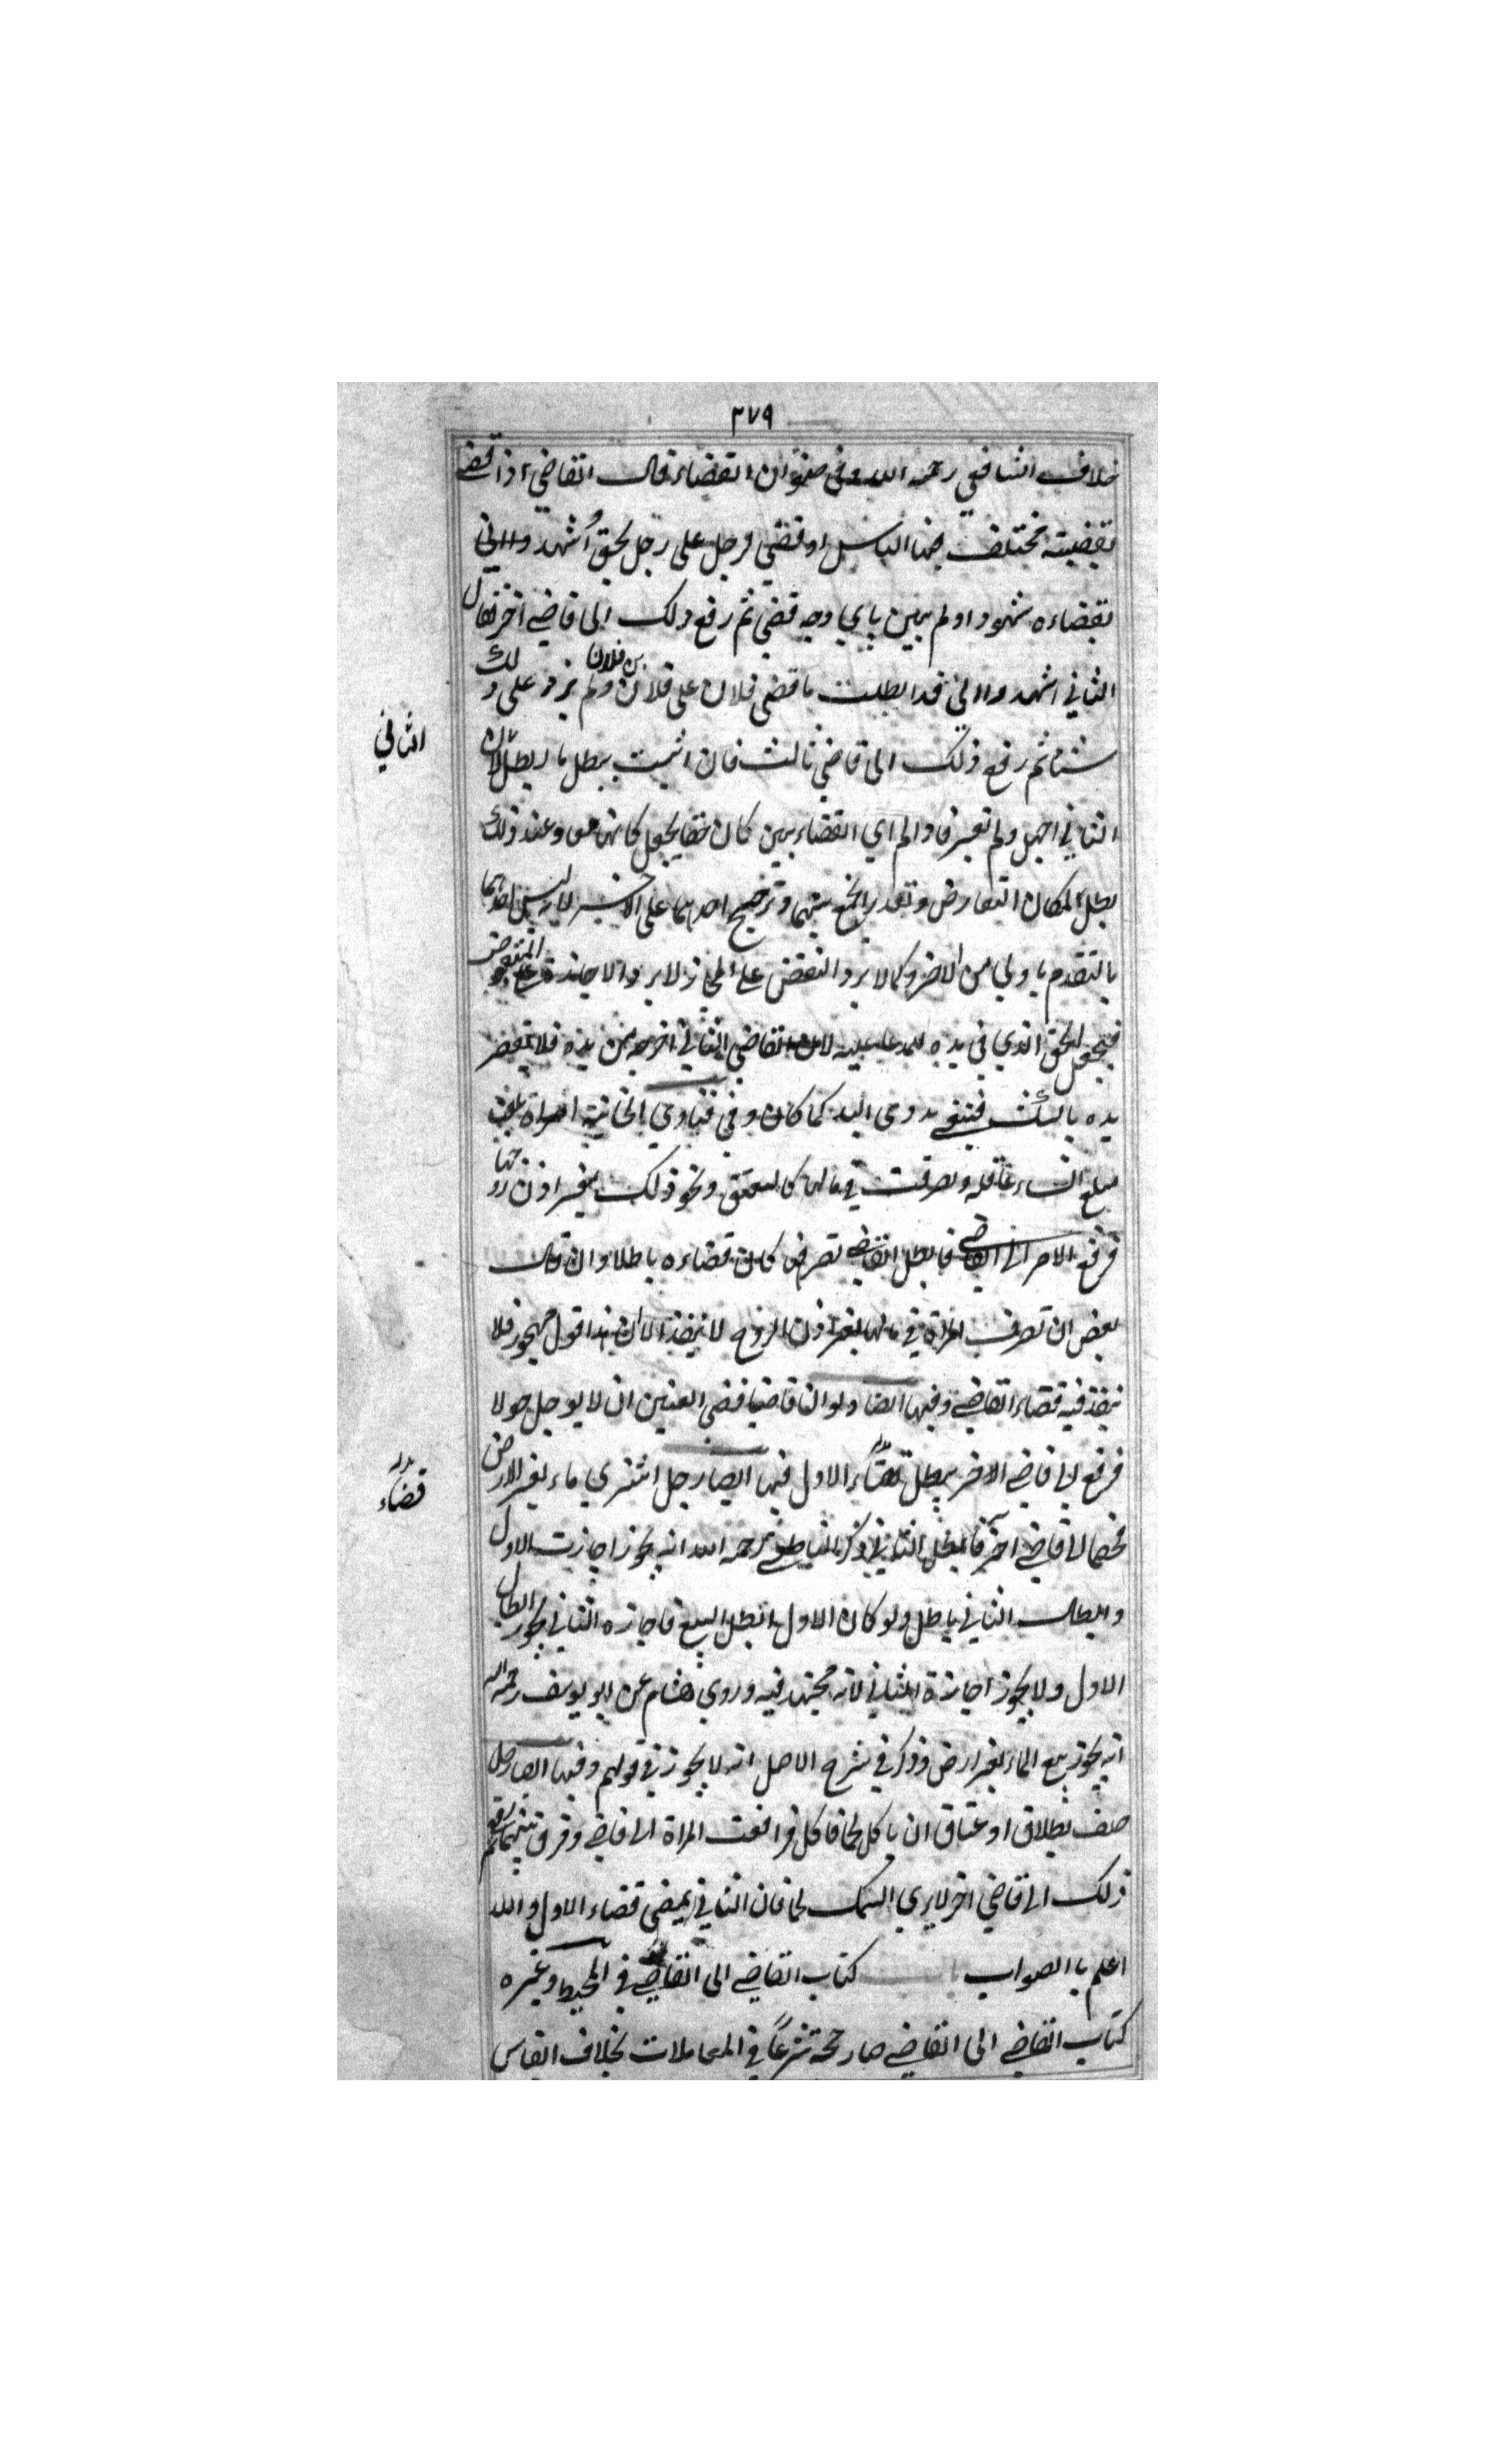 ٣٧٩
خلاف الشافعي رحمه الله وفي صنوان القضاء قال القاضي اذا قضى
بقضية مختلف فيها الناس او قضى لرجل على رجل بحق اشهدوا اني
بقضاءه شهود او لم يبين باي وجه قضى ثم رفع ذلك الى قاضي اخر فقال
الثاني اشهدوا اني قد ابطلت ما قضى فلان على فلان بن فلان ولم يزد على ذلك
شيئا ثم رفع ذلك الى قاضي ثالث فان اثبت يبطل ما ابطل لان
الثاني
الثاني اجمل ولم يفسر فاوالم اي القضاء يبين كان حقا يجعل كانهما معا وعند ذلك
بطل لمكان التعارض وتعذر الجمع بينهما وترجيح احدهما على الاخر لانه ليس احدهما
بالتقدم باولى من الاخر وكما لا يرد النقض على الجائز لا يرد الاجازة على المنقوض
فيجعل الحق الذي في يده للمدعا عليه لان القاضي الثاني اخرجه من يده فلا ينقض
يده بالشك فبقي ذوى اليد كما كان وفي فتاوى الخانية امراة بلغت
مبلغ النساء عاقلة وتصرفت في مالها كالعتق ونحو ذلك بغير اذن زوجها
فرفع الامر الى القاضي فابطل القاضي تصرفها كان قضاءه باطلا وان قال
بعض ان تصرف المراة في مالها بغير اذن الزوج لا ينفذ لان هذا قول مهجور فلا
ينفذ فيه قضاء القاضي وفيها ايضا ولو ان قاضيا قضى العنين ان لا يوجل حولا
فرفع الى قاضي الاخر يبطل قضاء الاول فيها ايضا رجل اشترى ماء بغير الارض
بدله قضاء
فخصما الى قاضي آخر فابطل الثاني ذكر الناطفي رحمه الله انه يجوز اجازت الاول
وابطال الثاني باطل ولو كان الاول ابطل البيع فاجازه الثاني يجوز ابطال
الاول ولا يجوز اجازة الثاني لانه مجتهد فيه وروى هشام عن ابو يوسف رحمه الله
انه يجوز بيع الماء بغير ارض وذكر في شرح الاصل انه لا يجوز في قولهم وفيها ايضا رجل
حلف بطلاق او عتاق ان ياكل لحما فاكل فرافعت المراة الى قاضي وفرق بينهما ثم رفع
ذلك الى قاضي اخر لا يرى السمك لحما فان الثاني يمضى قضاء الاول والله
اعلم باالصواب باب كتاب القاضي الى القاضي في المحيط وغيره
كتاب القاضي الى القاضي صار حجة شرعاً في المعاملات بخلاف القياس